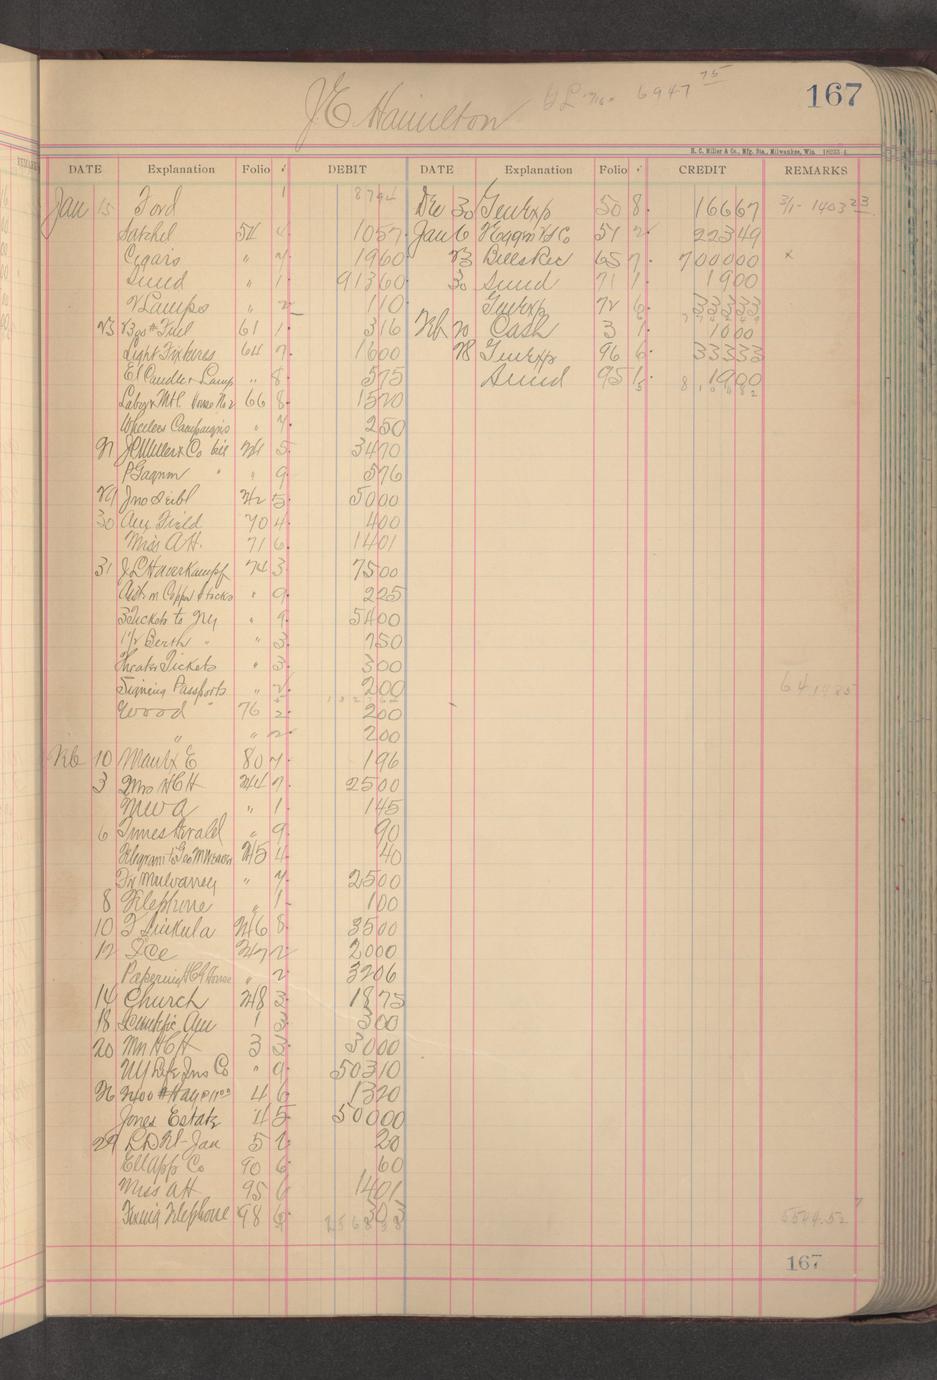 J E Hamilton 6947 75 167
H. C. Miller & Co., Mfg. Sta., Milwaukee, Wis.
DATE Explanation Folio ✓ DEBIT DATE Explanation Folio ✓ CREDIT REMARKS
Jan 15 Ford 1 8794 Dec 30 Gen Exp 50 8 16667 3/1 - 1403 23
Satchel 54 4 1057 Jan 6 51 2 22349
Cigars " 7 1960 23 Bills Rec 65 7 700000 x
Sund " 1 91360 30 Sund 71 1 1900
2 Lamps " 2 110 Gen Exp 72 6 3333
23 Fuel 61 1 316 Feb 20 Cash 3 1 1000
Light Fixtures 64 7 1600 28 Gen Exp 96 6 33333
El Candle + Lamp " 8 575 Sund 95 1 1900
Labor & Mtl House No 2 66 8 1520
Wheelers Campaigns " 7 250
27 Co bill 5 3470
P Gagnon " " 9 576
29 Jno 5 5000
30 Am Field 70 4 400
Miss A H. 71 6 1401
31 J L Haverkampf 74 3 7500
Copper Stocks " 9 225
3 Tickets to NY " 9 5400
1/2 Berth " " 3 750
Theater Tickets " 3 300
Signing Passports " 2 200
Wood " 76 2 200
" " 2 200
Feb 10 E 80 7 196
3 Mrs H C H 244 7 2500
M W A " 1 145
6 Times Herald " 9 90
Telegram to Geo 245 4 40
Mulvaney " 7 2500
8 Telephone " 1 100
10 246 8 3500
12 Ice 247 2 2000
Papering House " 2 3206
14 Church 248 3 1875
18 Scientific Am 1 3 300
20 Mrs H C H 3 3 3000
NY Life Ins Co " 9 50310
26 2400 # Hay 4 6 1320
Jones Estate 4 5 50000
29 Jan 5 2 20
Ell App Co 90 6 60
Miss A H 95 6 1401
Fixing Telephone 98 6 303
5544.52
167